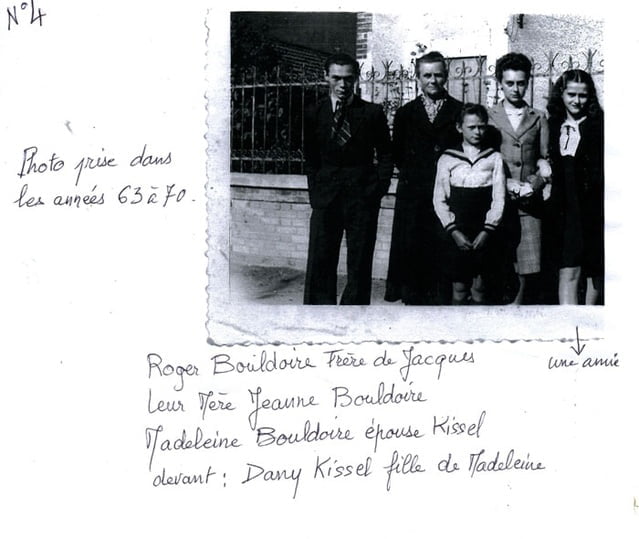 N°4
Photo prise dans
les années 63 à 70.
Roger Bouldoire Frère de Jacques
leur Mère Jeanne Bouldoire
Madeleine Bouldoire épouse Kissel
devant : Dany Kissel fille de Madeleine
une amie